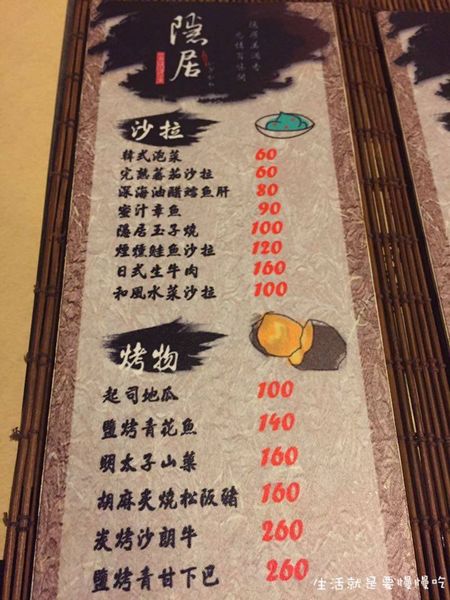 隱居
沙拉
韓式泡菜 60
完熟蕃茄沙拉 60
深海油醋鱈魚肝 80
蜜汁章魚 90
隱居玉子燒 100
煙燻鮭魚沙拉 120
日式生牛肉 160
和風水菜沙拉 100
烤物
起司地瓜 100
鹽烤青花魚 140
明太子山藥 160
胡麻炙燒松阪豬 160
炭烤沙朗牛 260
鹽烤青甘下巴 260
生活就是要慢慢吃